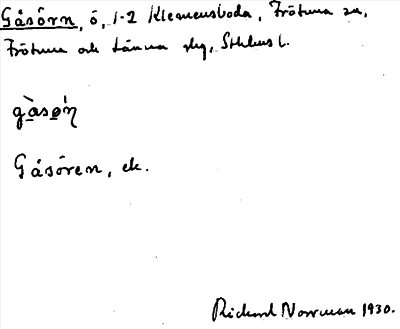 Gåsörn, ö, 1-2 Klemensboda, Frötuna sn,
Frötuna och Länna skg, Sthlms l.
gàsø̀ṇ
Gåsören, ek.
Richard Norrman 1930.